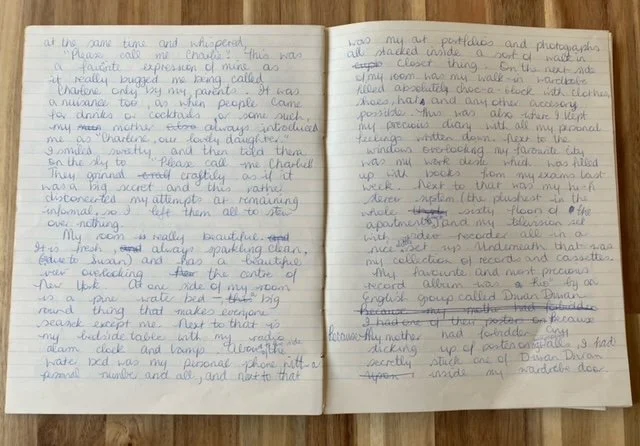 at the same time and whispered,
"Please call me Charlie". This was
a favourite expression of mine as
it really bugged me being called
Charlene only by my parents. It was
a nuisance too, as when people came
for drinks or cocktails or some such,
my mother always introduced
me as "Charlene, our lovely daughter."
I smiled sweetly and then told them
on the sly to "Please call me Charlie!"
They grinned craftily as if it
was a big secret and this rather
disconcerted my attempts at remaining
informal, so I left them all to stew
over nothing.
My room is really beautiful. and
It is fresh, and always sparkling clean,
(due to Susan) and has a beautiful
view overlooking the centre of
New York. At one side of my room
is a pine water bed – that big
round thing that makes everyone
seasick except me. Next to that is
my bedside table with my radio
alarm clock and lamps. Above the
water bed was my personal phone with a
personal number and all, and next to that
was my art portfolios and photographs
all stacked inside a sort of walk in
closet thing. On the next side
of my room was my walk-in wardrobe
filled absolutely choc-a-block with clothes,
shoes, hats and any other accesory
possible. This was also where I kept
my precious diary with all my personal
feelings written down. Next to the
windows overlooking my favourite city
was my work desk which was filled
up with books from my exams last
week. Next to that was my hi-fi
stereo system (the plushest in the
whole sixty floor of the
apartments) and my television set
with video recorder all in a
nice set up. Underneath that was
my collection of records and cassettes.
My favourite and most precious
record album was a by an
English group called Duran Duran
because my mother had forbidden
I had one of their poster on because
Because My mother had forbidden any
sticking up of posters on walls, I had
secretly stuck one of Duran Duran
upon inside my wardrobe door